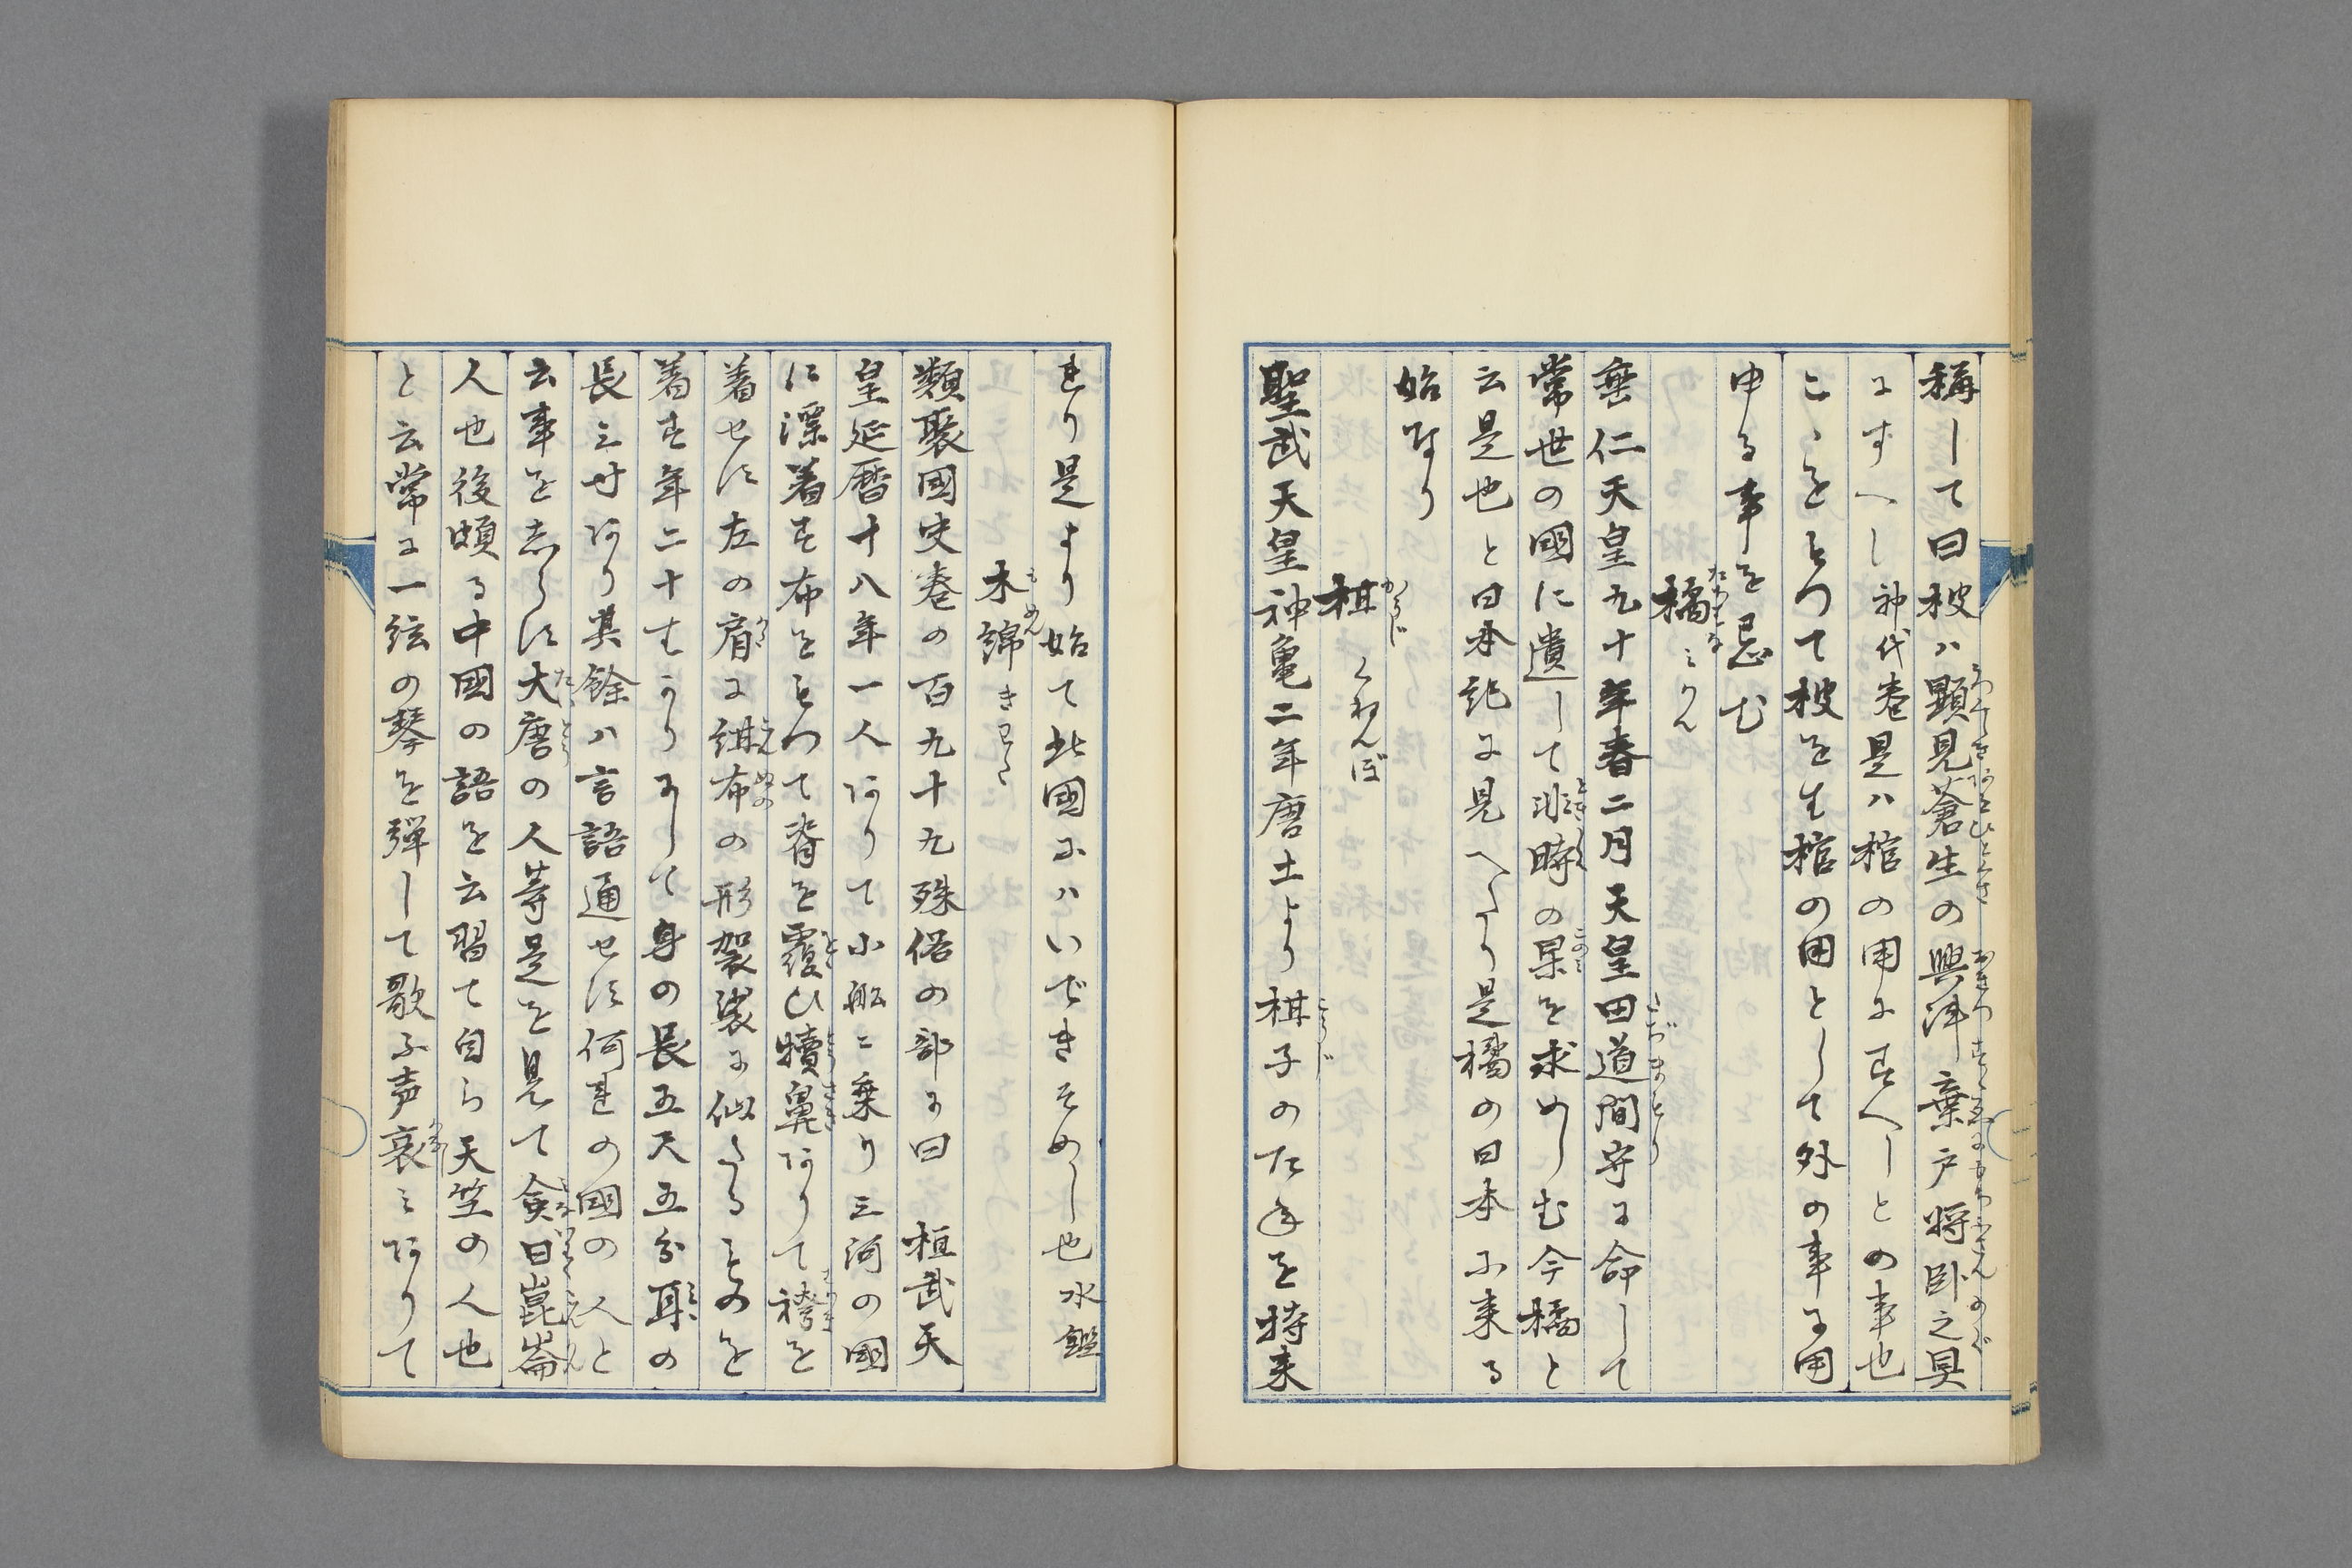 稱して曰柀ハ顕見蒼生の興津棄戸将臥之具
にすへし神代巻是ハ棺の用にすへしとの事也
こゝをもつて柀を生棺の用として外の事に用
ゆる事を忌む
橘 たちばな みかん
垂仁天皇九十年春二月天皇田道間守に命して
常世の國に遺して非時の菓を求めしむ今橘と
云是也と日本記に見へたり是橘の日本に来る
始なり
柑 かうじ くねんぼ
聖武天皇神亀二年唐土より柑子のたねを持来
れり是より始て此國にハいできそめし也水鑑
木綿 もめん きわた
類聚國史巻の百九十九殊俗の部に曰 桓武天
皇延暦十八年一人ありて小船に乗り三河の國
に漂着す布をもつて脊を覆ひ犢鼻ありて袴を
着せす左の肩に紺布の形袈裟に似たるものを
着す年二十すにして身の長五尺五分耳の
長三寸あり其餘ハ言語通せす何れの國の人と
云事を志らす大唐の人等是を見て僉曰崑崙
人也後頗る中國の語を云習て自ら天竺の人也
と云常に一絃の琴を弾して歌ふ声哀みありて